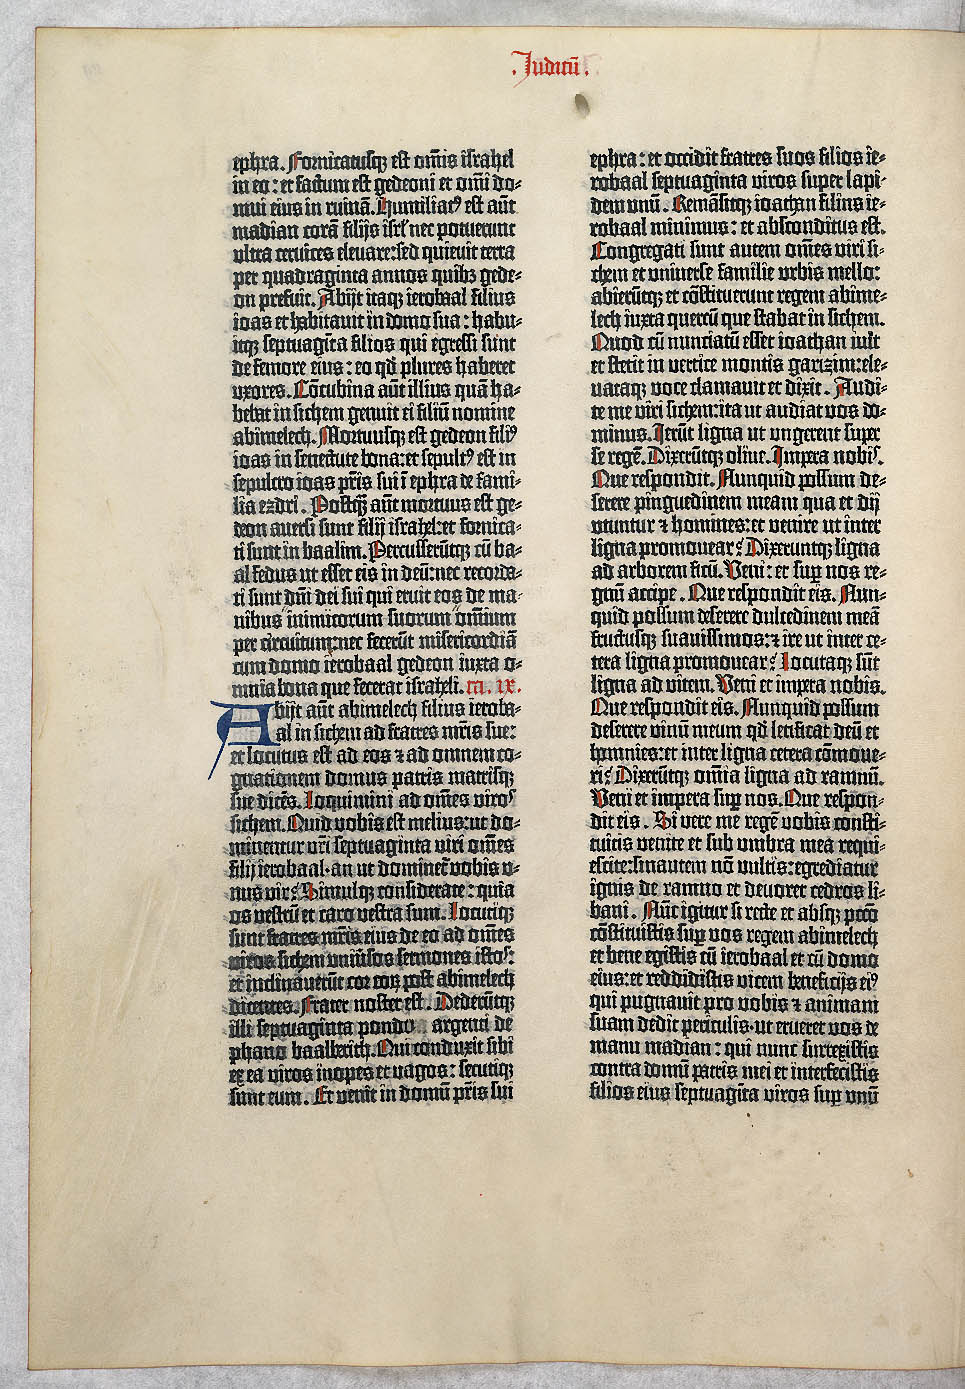 .Judicũ.
ephra. Fornicatusqꝫ est om̃is israhel
in eo: et factum est gedeoni et om̃i do-
mui eius in ruinã. Humiliatꝰ est aũt
madian corã filijs isrl̃ nec potuerunt
ultra cervices elevare: sed quievit terra
per quadraginta annos quibꝫ gede-
on prefuit. Abijt itaqꝫ ierobaal filius
ioas et habitavit in domo sua: habu-
itqꝫ septuagĩta filios qui egressi sunt
de femore eius: eo qd̃ plures haberet
uxores. Cõcubina aũt illius quã ha-
bebat in sichem genuit ei filiũ nomine
abimelech. Mortuusqꝫ est gedeon filiꝰ
ioas in senectute bona: et sepultꝰ est in
sepulcro ioas pr̃is sui ĩ ephra de fami-
lia ezdri. Postqꝫ̃ aũt mortuus est ge-
deon aversi sunt filij israhel: et fornica-
ti sunt in baalim. Percusserũtqꝫ cũ ba-
al fedus ut esset eis in deũ: nec recorda-
ti sunt dñi dei sui qui eruit eos de ma-
nibus inimicorum suorum om̃ium
per circuitum: nec fecerũt misericordiã
cum domo ierobaal gedeon iuxta o-
mnia bona que fecerat israheli. ca. ix.
Abijt aũt abimelech filius ieroba-
al in sichem ad fratres mr̃is sue:
et locutus est ad eos ⁊ ad omnem co-
gnationem domus patris matrisqꝫ
sue dicẽs. Loquimini ad om̃es viros
sichem. Quid vobis est melius: ut do-
minentur vr̃i septuaginta viri om̃es
filij ierobaal· an ut dominet̃ vobis u-
nus vir? Simulqꝫ considerate: quia
os vestrũ et caro vestra sum. Locutiqꝫ
sunt fratres mr̃is eius de eo ad om̃es
viros sichem uniṽsos sermones istos:
et inclinaverũt cor eoꝝ post abimelech
dicentes. Frater noster est. Dederũtqꝫ
illi septuaginta pondo argenti de
phano baalberith. Qui conduxit sibi
ex ea viros inopes et vagos: secutiqꝫ
sunt eum. Et venit in domũ pr̃is sui
ephra: et occidit fratres suos filios ie-
robaal septuaginta viros super lapi-
dem unũ. Remãsitqꝫ ioathan filius ie-
robaal minimus: et absconditus est.
Congregati sunt autem om̃es viri si-
chem et universe familie urbis mello:
abierũtqꝫ et cõstituerunt regem abime-
lech iuxta quercũ que stabat in sichem.
Quod cũ nunciatũ esset ioathan ivit
et stetit in vertice montis garizim: ele-
vataqꝫ voce clamavit et dixit. Audi-
te me viri sichem: ita ut audiat vos do-
minus. Ierũt ligna ut ungerent super
se regẽ. Dixerũtqꝫ olive. Impera nobis.
Que respondit. Nunquid possum de-
serere pinguedinem meam qua et dij
utuntur ⁊ homines: et venire ut inter
ligna promovear? Dixeruntqꝫ ligna
ad arborem ficũ. Veni: et suꝑ nos re-
gnũ accipe. Que respondit eis. Nun-
quid possum deserere dulcedinem meã
fructusqꝫ suavissimos: ⁊ ire ut inter ce-
tera ligna promovear? Locutaqꝫ sũt
ligna ad vitem. Veni et impera nobis.
Que respondit eis. Nunquid possum
deserere vinũ meum qd̃ letificat deũ et
homines: et inter ligna cetera cõmove-
ri? Dixerũtqꝫ om̃ia ligna ad ramnũ.
Veni et impera suꝑ nos. Que respon-
dit eis. Si vere me regẽ vobis consti-
tuitis venite et sub umbra mea requi-
escite: sinautem nõ vultis: egrediatur
ignis de ramno et devoret cedros li-
bani. Nũc igitur si recte et absqꝫ pctõ
cõstituistis suꝑ vos regem abimelech
et bene egistis cũ ierobaal et cũ domo
eius: et reddidistis vicem beneficijs eiꝰ
qui pugnavit pro vobis ⁊ animam
suam dedit periculis· ut erueret vos de
manu madian: qui nunc surrexistis
contra domũ patris mei et interfecistis
filios eius septuagĩta viros suꝑ unũ